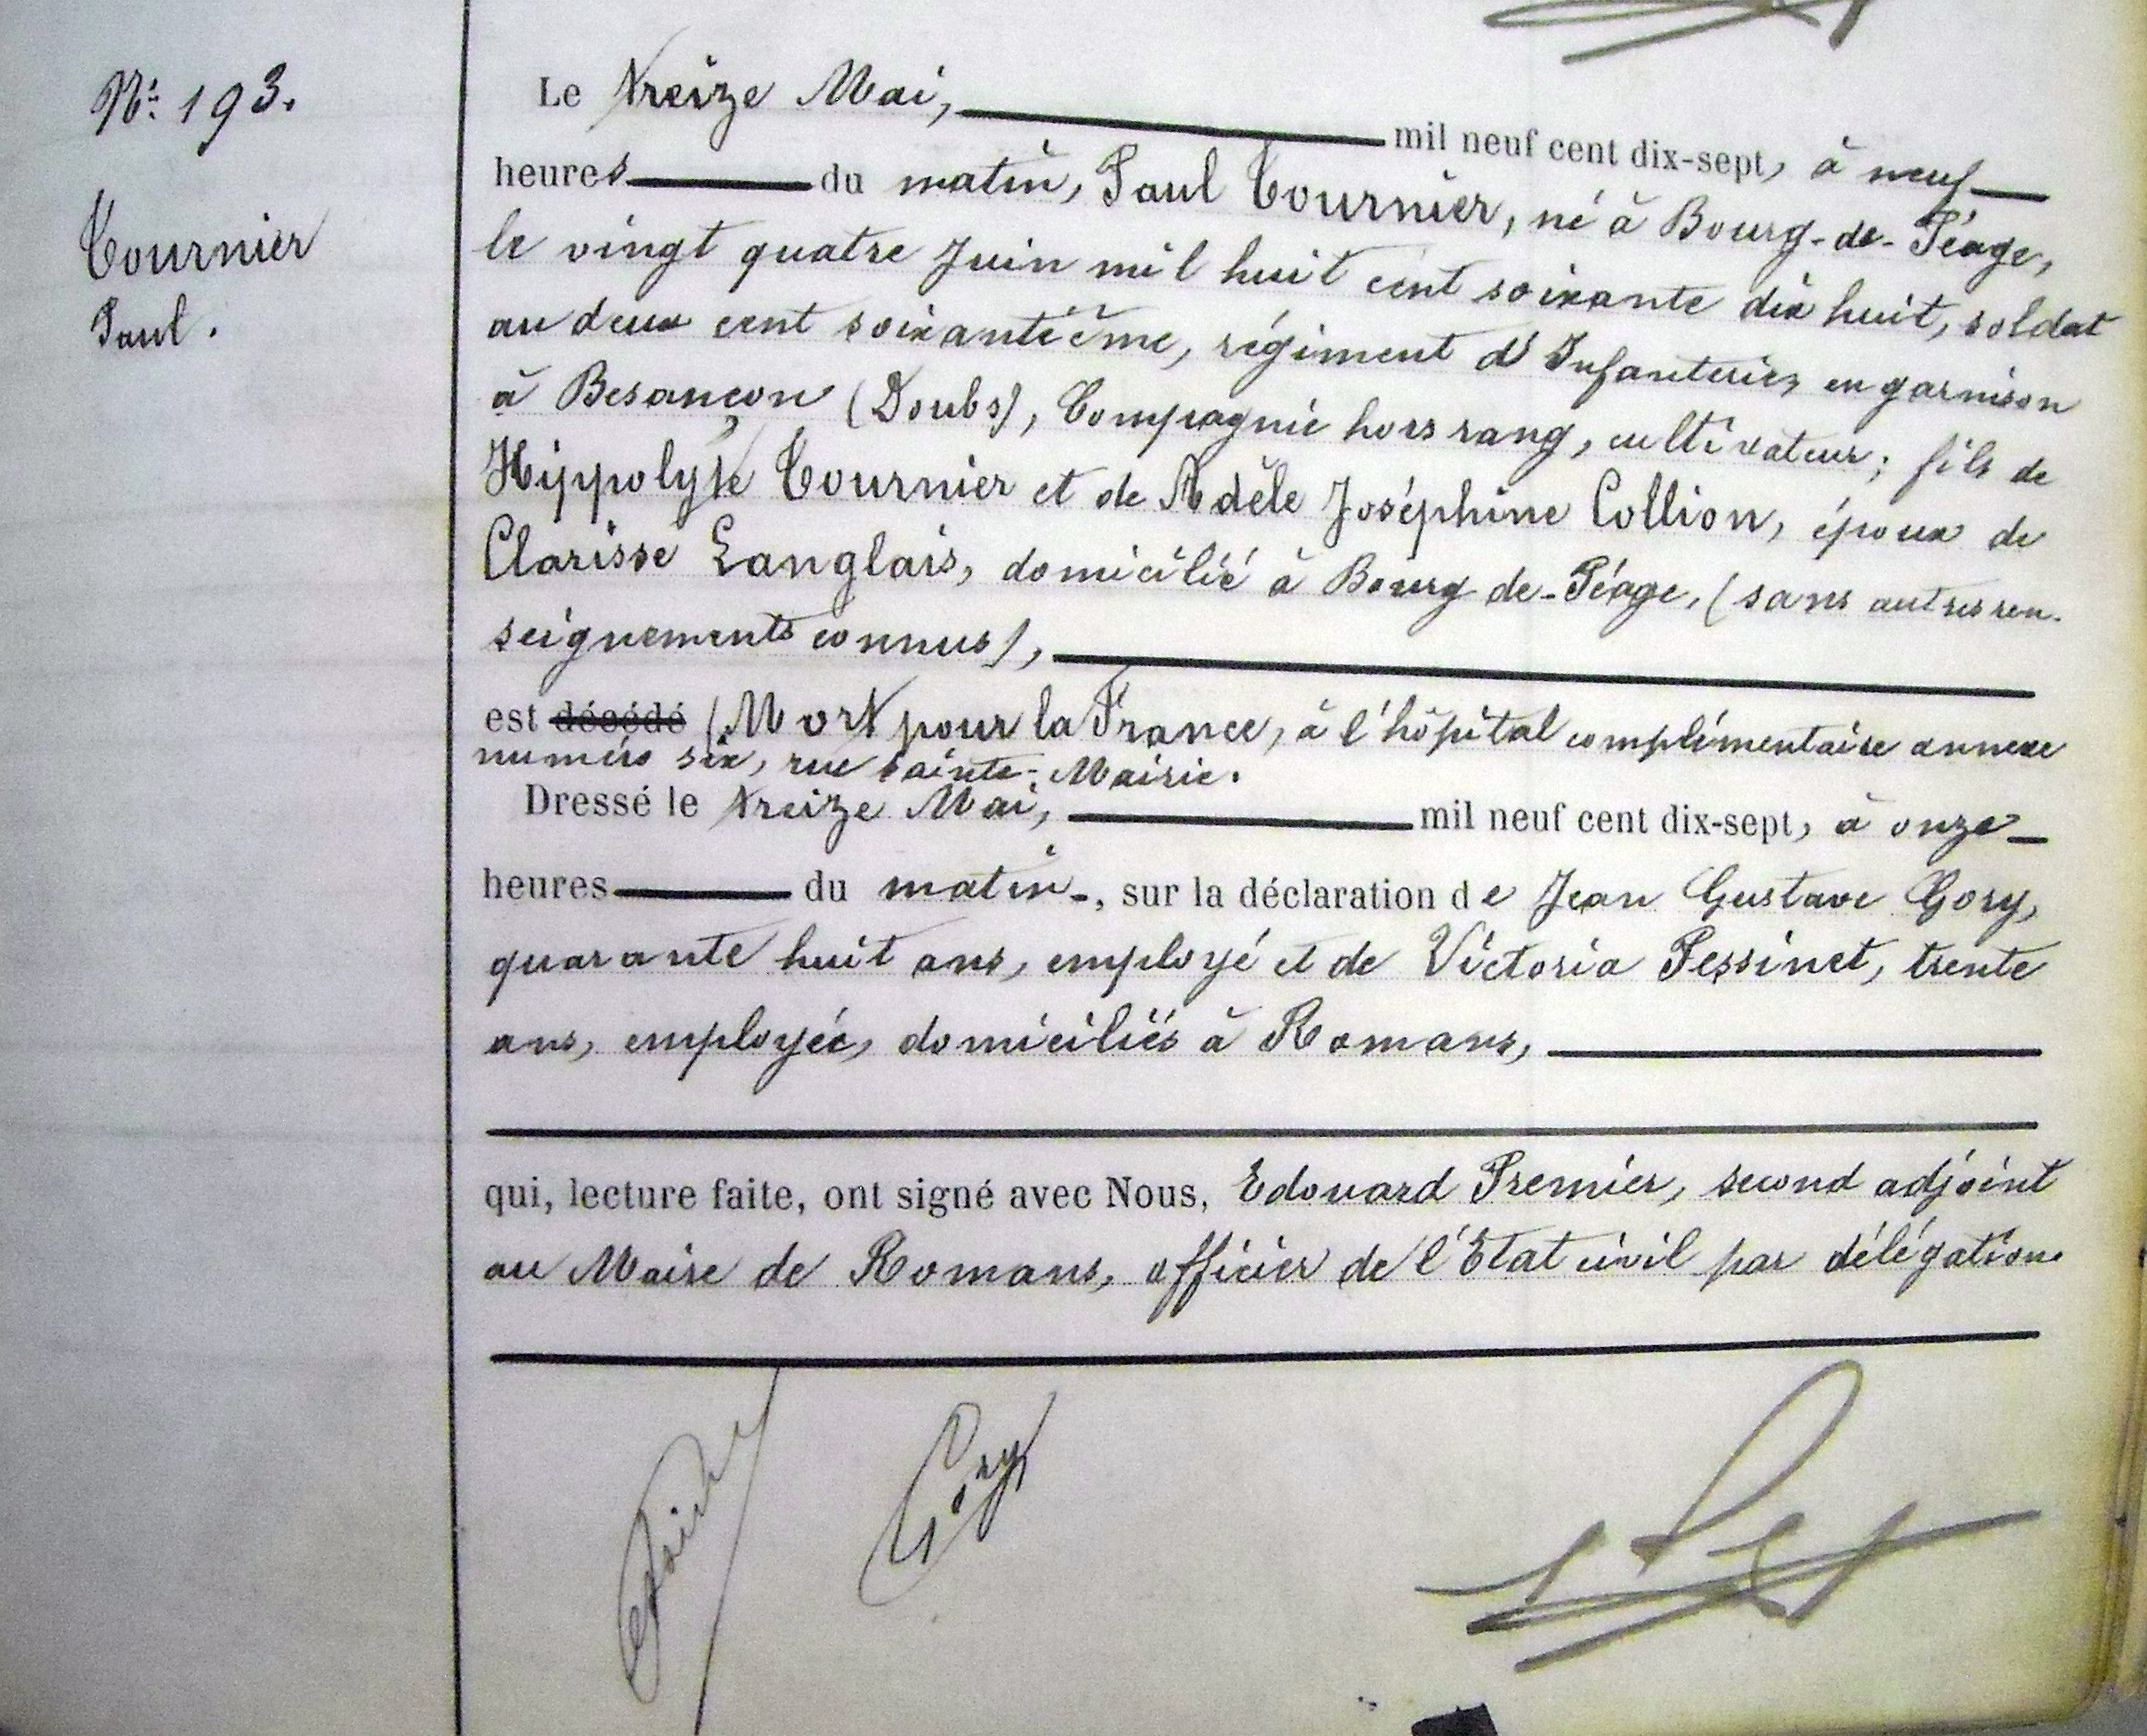 N°: 193.
Tournier
Paul.
Le treize Mai, mil neuf cent dix-sept, à neuf
heures du matin, Paul Tournier, né à Bourg-de-Péage,
le vingt quatre Juin mil huit cent soixante dix huit, soldat
au deux cent soixantième, régiment d'Infanterie, en garnison
à Besançon (Doubs), Compagnie hors rang, cultivateur; fils de
Hippolyte Tournier et de Adèle Joséphine Collion, époux de
Clarisse Langlais, domicilié à Bourg de-Péage, (sans autres ren-
seignements connus),
est décédé (Mort pour la France, à l'hôpital complémentaire annexe
numéro six, rue Sainte-Mairie.
Dressé le treize Mai, mil neuf cent dix-sept, à onze
heures du matin, sur la déclaration de Jean Gustave Gory,
quarante huit ans, employé et de Victoria Pessinet, trente
ans, employée, domiciliés à Romans,
qui, lecture faite, ont signé avec Nous, Edouard Premier, second adjoint
au Maire de Romans, officier de l'Etat civil par délégation.
Gory